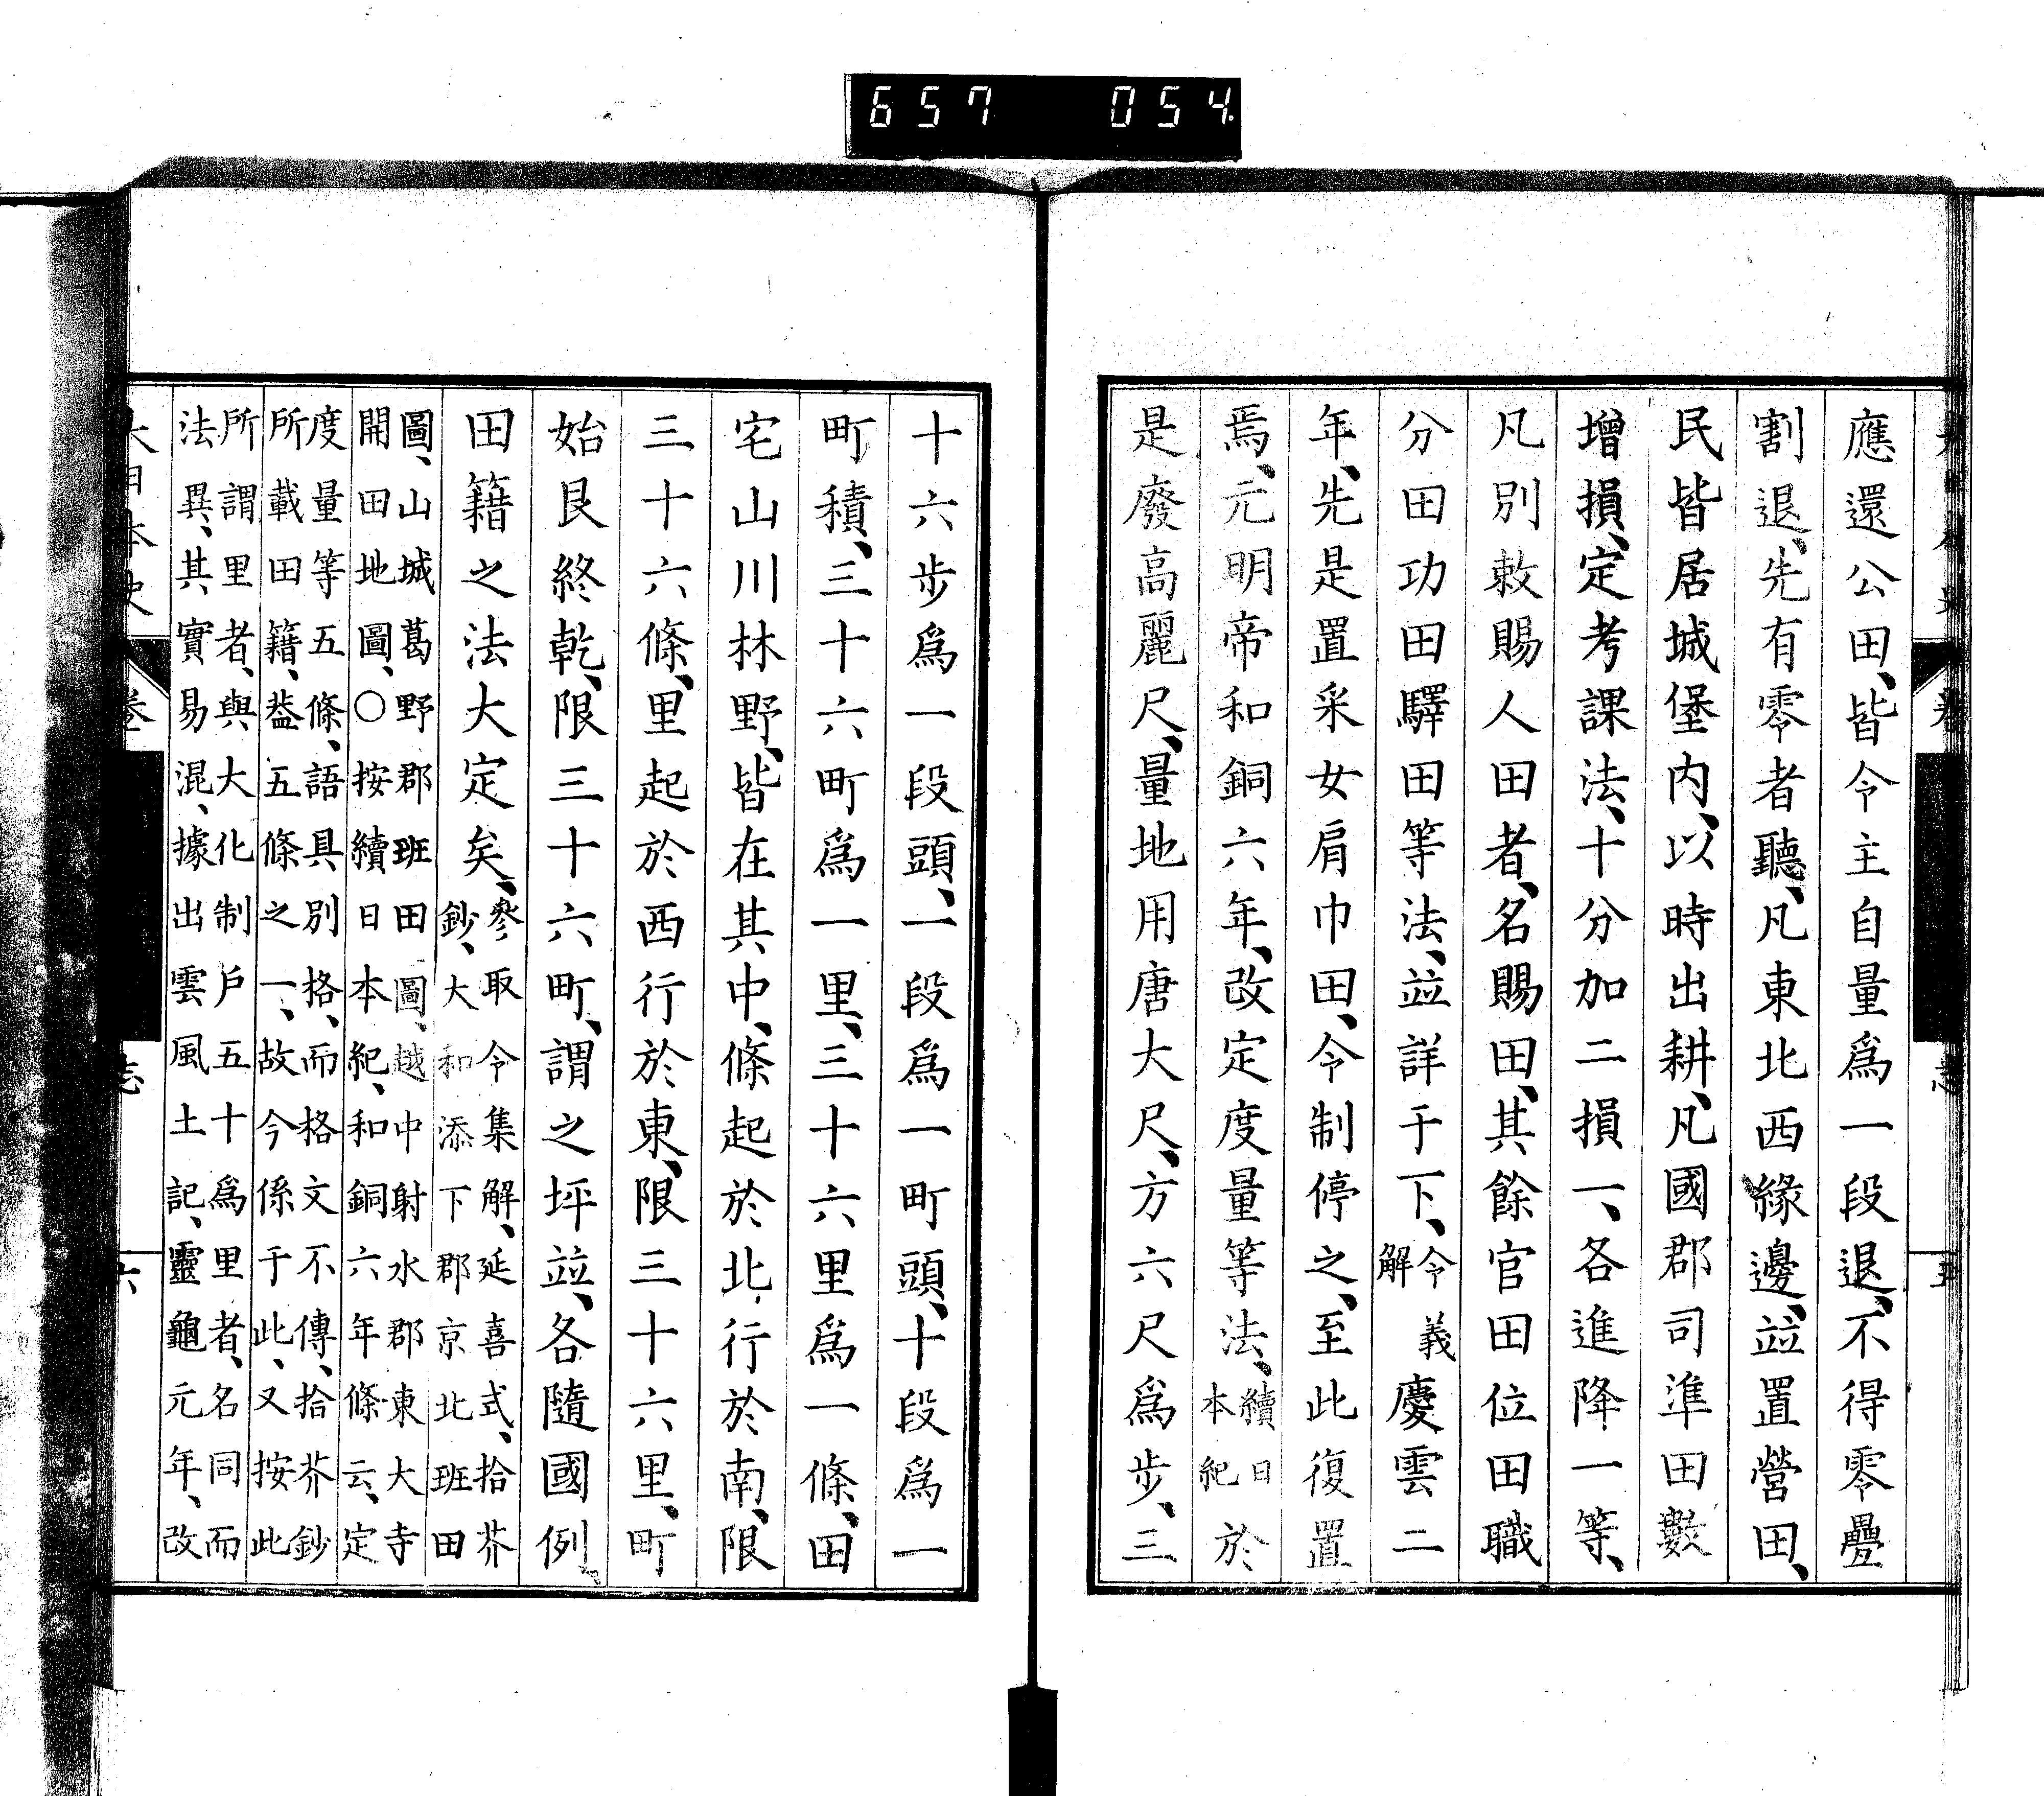 657 054
應還公田、皆令主自量爲一段退、不得零疊
割退、先有零者聽、凡東北西緣邊、並置營田、
民皆居城堡內、以時出耕、凡國郡司準田數
增損、定考課法、十分加二損一、各進降一等、
凡別敕賜人田者、名賜田、其餘官田位田職
分田功田驛田等法、並詳于下、令義解慶雲二
年、先是置采女肩巾田、令制停之、至此復置
焉、元明帝和銅六年、改定度量等法、續日本紀於
是廢高麗尺、量地用唐大尺、方六尺爲步、三
十六步爲一段頭、一段爲一町頭、十段爲一
町積、三十六町爲一里、三十六里爲一條、田
宅山川林野、皆在其中、條起於北行於南、限
三十六條、里起於西行於東、限三十六里、町
始艮終乾、限三十六町、謂之坪並、各隨國例、
田籍之法大定矣、參取令集解、延喜式、拾芥
鈔、大和添下郡京北班田
圖、山城葛野郡班田圖、越中射水郡東大寺
開田地圖、〇按續日本紀、和銅六年條云、定
度量等五條、語具別格、而格文不傳、拾芥鈔
所載田籍、葢五條之一、故今係于此、又按此
所謂里者、與大化制戶五十爲里者、名同而
法異、其實易混、據出雲風土記、靈龜元年、改
大日本史 卷 志 六